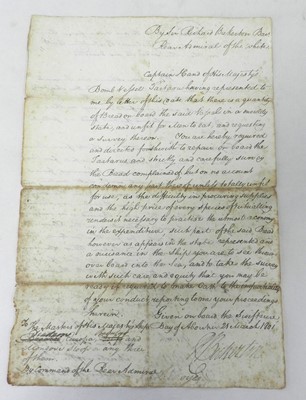 By Sir Richard Bickerton Bart
Rear Admiral of the White
Captain Hand of His Majesty's
Bomb Vessel Tartarus having represented to
me by letter of this date that there is a quantity
of Bread on board the said Ship in a mouldy
state, and unfit for Men to eat, and requesting
a survey thereon. You are hereby required
and directed forthwith to repair on board the
Tartarus and strictly and carefully survey
the Bread complained of but on no account
condemn any part thereof unless totally unfit
for use; as the difficulty in procuring supplies
and the high price of every species of victualling
renders it necessary to practice the utmost economy
in the expenditure, such part of the said Bread
however as appears in the state represented and
a nuisance in the Ship you are to see thrown
overboard into the Sea, and to take the survey
with such care and equity that you may be
ready if required to make Oath to the impartiality
of your conduct reporting to me your proceedings
herein. Given on board the Swiftsure
Day of March 1801
To The Masters of His Majesty's Ships
or any three
of them
By Command of the Rear Admiral